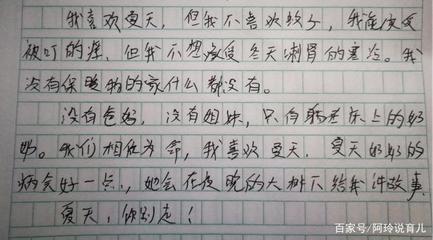 我喜欢夏天，但我不喜欢蚊子，我能忍受
被叮的痒，但我不想感受冬天刺骨的寒冷。我
没有保暖的 家什么都没有。
没有爸妈，没有姐妹，只有躺在床上的奶
奶。我们相依为命，我喜欢夏天，夏天奶奶的
病会好一点，她会在夜晚的大树下给我讲故事，
夏天，你别走！
百家号/阿玲说育儿